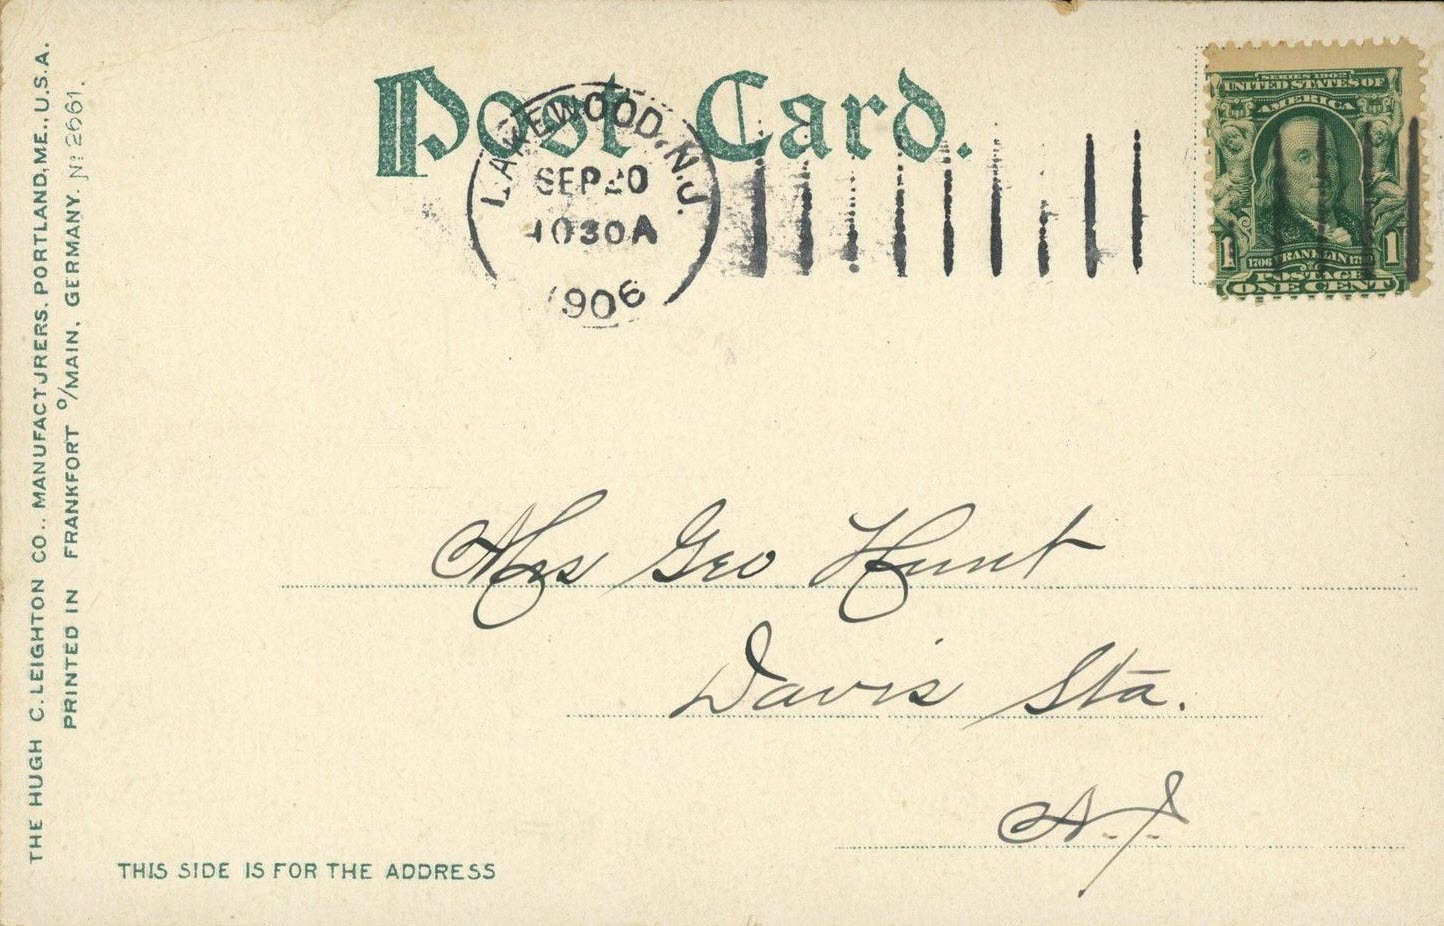 THE HUGH C. LEIGHTON CO., MANUFACTURERS, PORTLAND, ME., U.S.A.
PRINTED IN FRANKFORT o/MAIN, GERMANY. No 2661.
Post Card.
LAKEWOOD, N.J.
SEP 20
1030A
1906
SERIES 1902
UNITED STATES OF
AMERICA
1 1706 FRANKLIN 1790 1
POSTAGE
ONE CENT
Mrs Geo Hunt
Davis Sta.
N.J.
THIS SIDE IS FOR THE ADDRESS